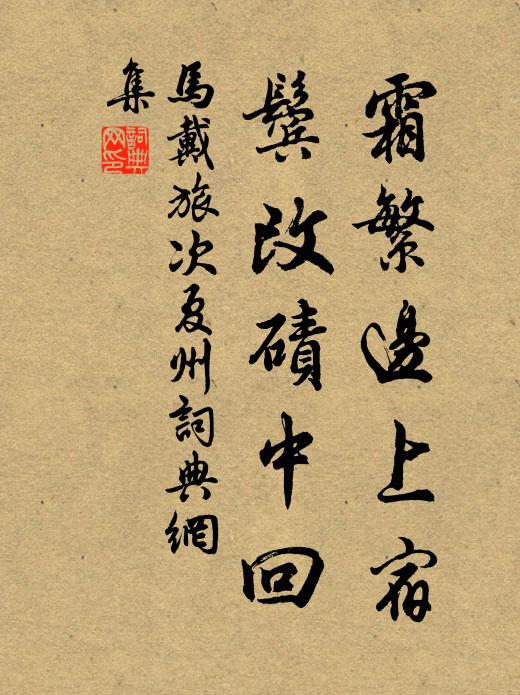 霜繁邊上宿
鬢改磧中回
馬戴旅次夏州詞典網
集
詞典
网印